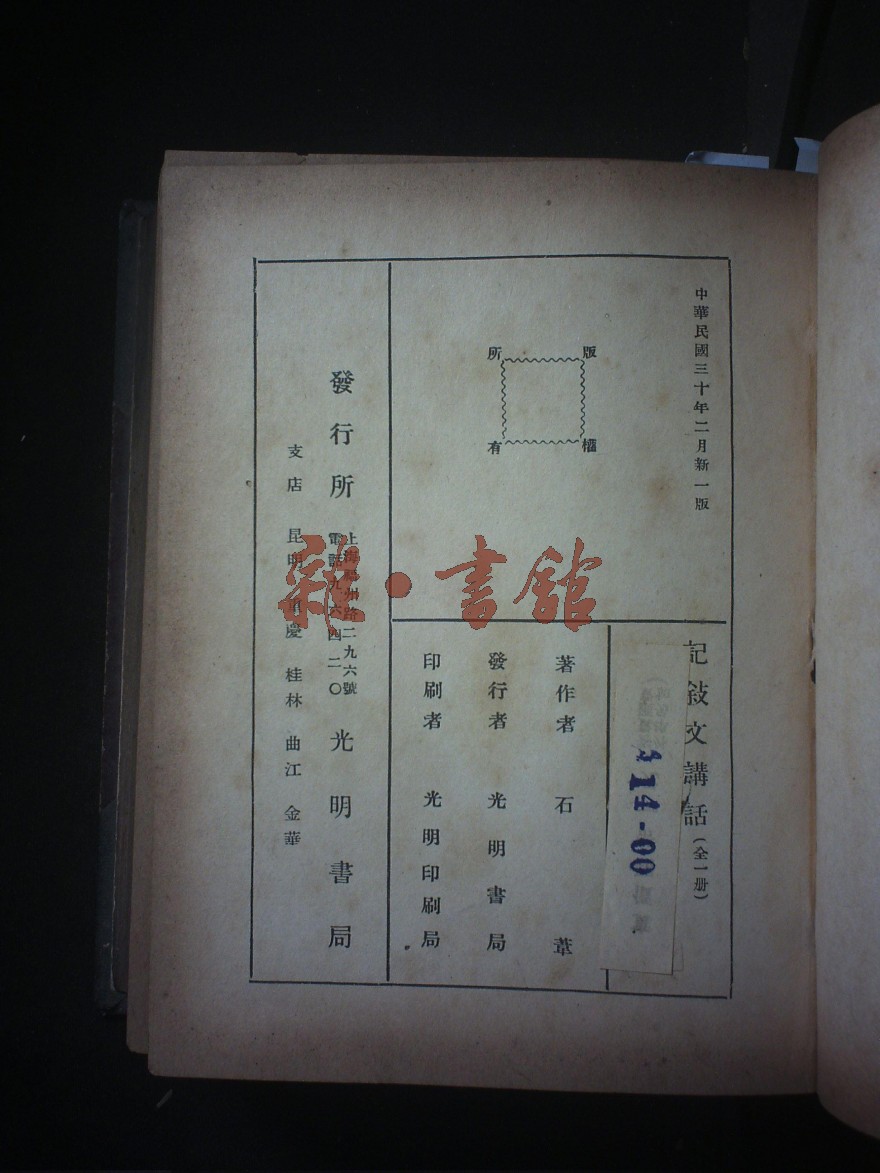 中華民國三十年二月新一版
版權所有
記敍文講話(全一册)
114-00
著作者 石葦
發行者 光明書局
印刷者 光明印刷局
發行所 上海福州路二九六號 電話九六四二〇 光明書局
支店 昆明 重慶 桂林 曲江 金華
雜·書館